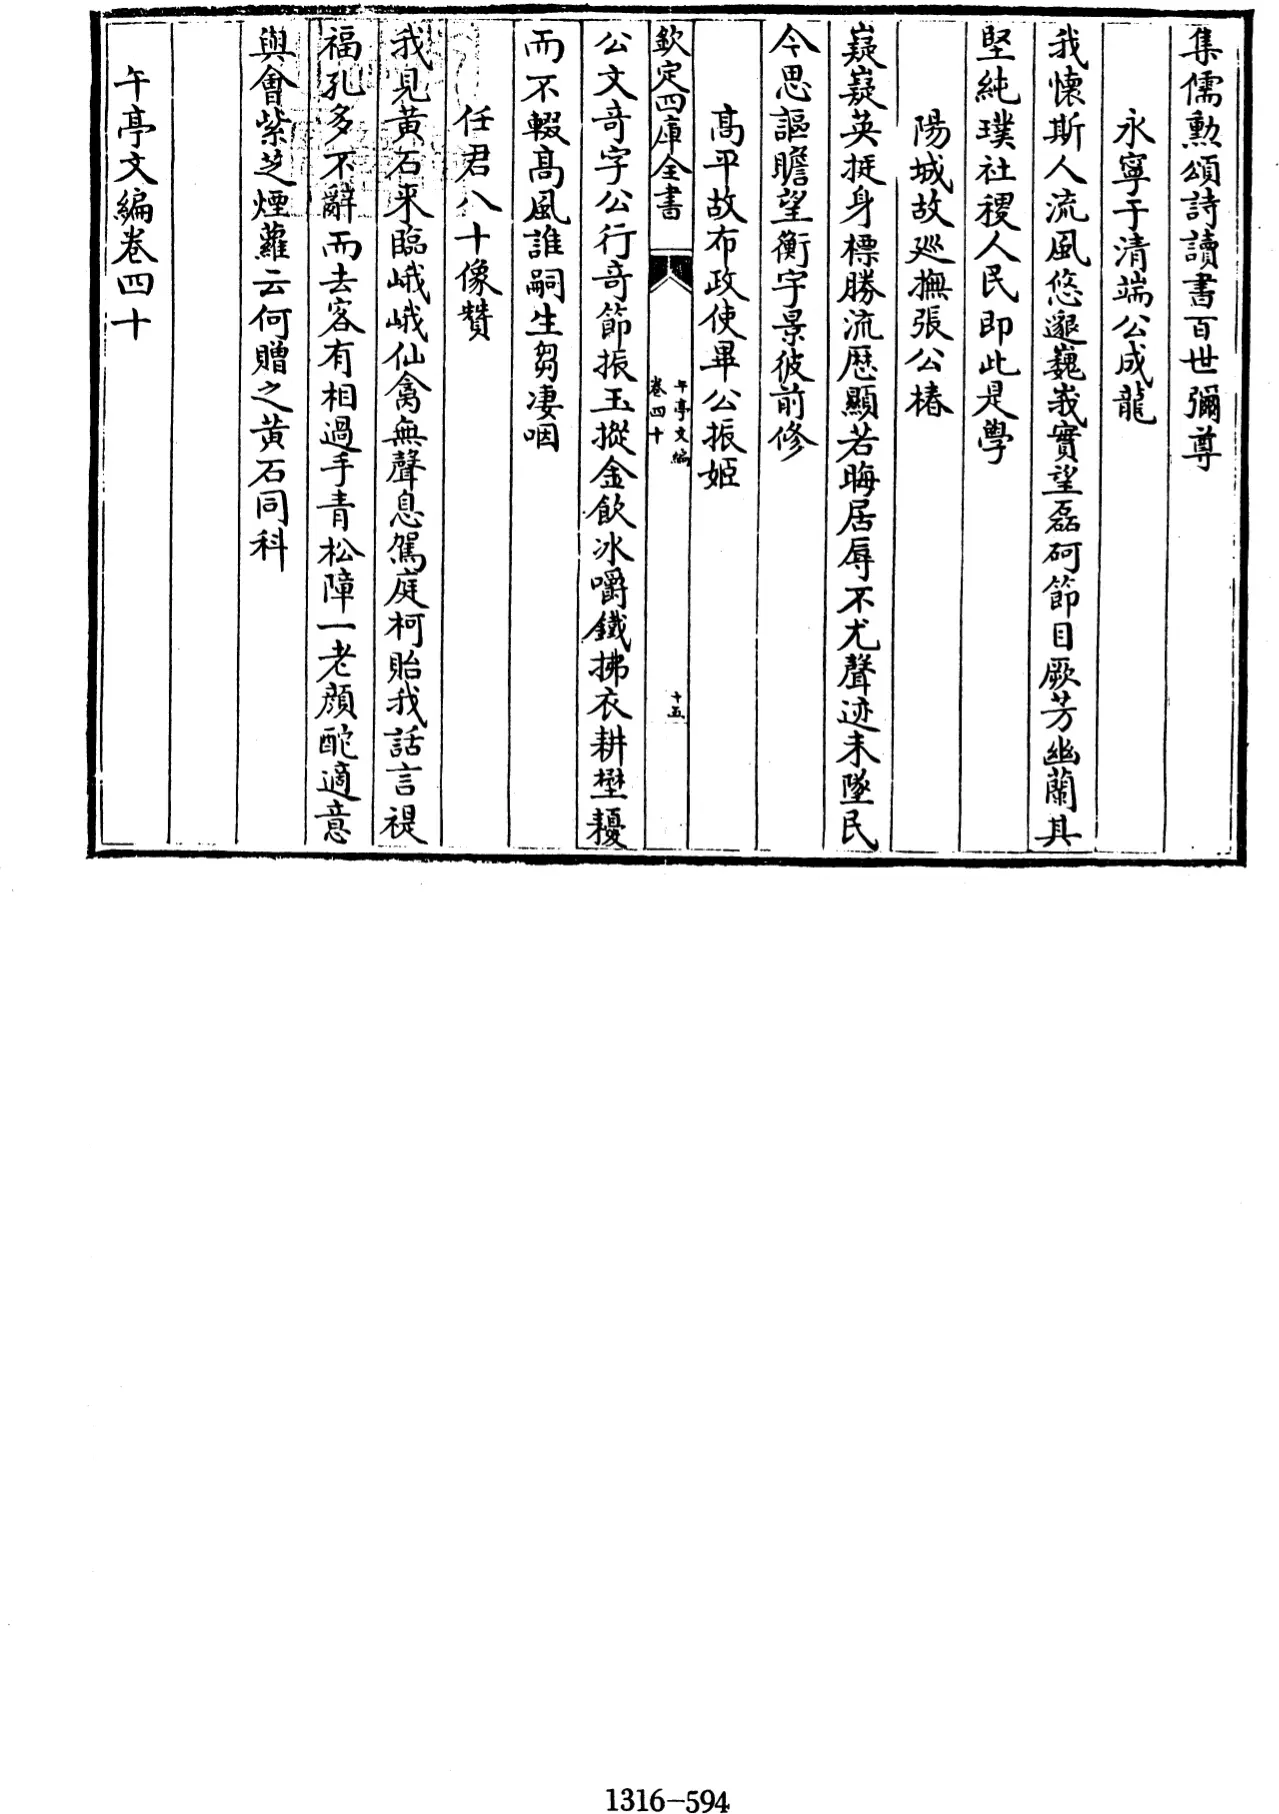 集儒勲頌詩讀書百世彌尊
永寧于清端公成龍
我懷斯人流風悠邈巍峩實望磊砢節目厥芳幽蘭其
堅純璞社稷人民即此是學
陽城故廵撫張公椿
嶷嶷英挺身標勝流歴顯若晦居辱不尤聲迹未墜民
今思謳瞻望衡宇景彼前修
髙平故布政使畢公振姬
欽定四庫全書
午亭文編
卷四十
十五
公文竒字公行竒節振玉摐金飲冰嚼鐵拂衣耕壄耰
而不輟髙風誰嗣生芻凄咽
任君八十像贊
我見黄石来臨峨峨仙禽無聲息駕庭柯貽我話言禔
福孔多不辭而去客有相過手青松障一老顔酡適意
與會紫芝煙蘿云何贈之黄石同科
午亭文編卷四十
1316-594